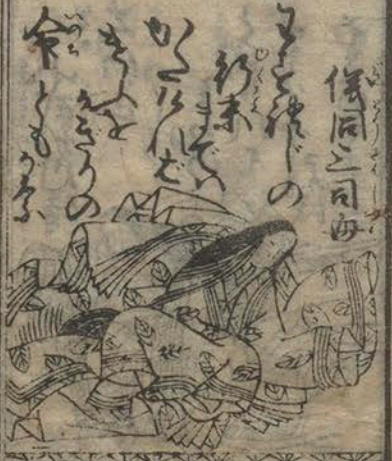 儀同三司母
わすれじの
行末
までハ
かたければ
けふを
かぎりの
命ともがな